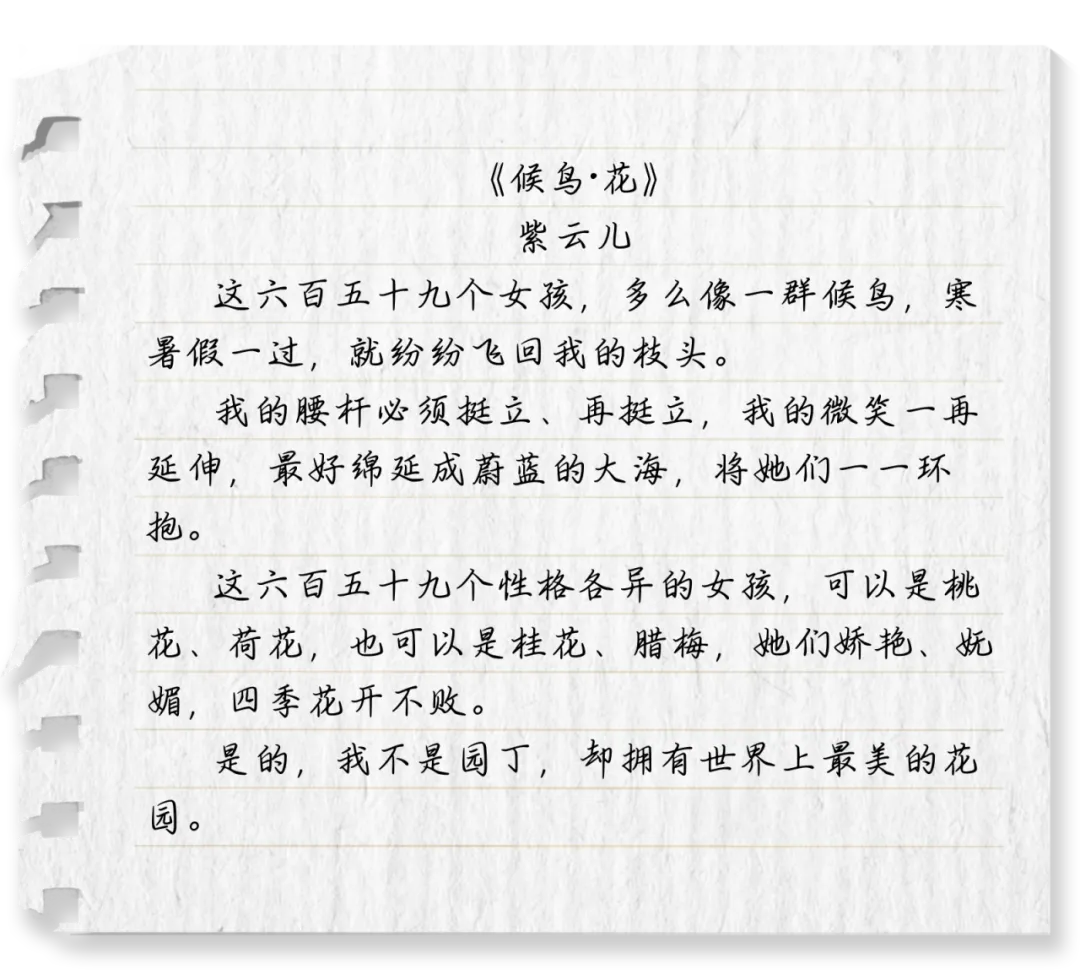 《候鸟·花》
紫云儿
这六百五十九个女孩，多么像一群候鸟，寒
暑假一过，就纷纷飞回我的枝头。
我的腰杆必须挺立、再挺立，我的微笑一再
延伸，最好绵延成蔚蓝的大海，将她们一一环
抱。
这六百五十九个性格各异的女孩，可以是桃
花、荷花，也可以是桂花、腊梅，她们娇艳、妩
媚，四季花开不败。
是的，我不是园丁，却拥有世界上最美的花
园。